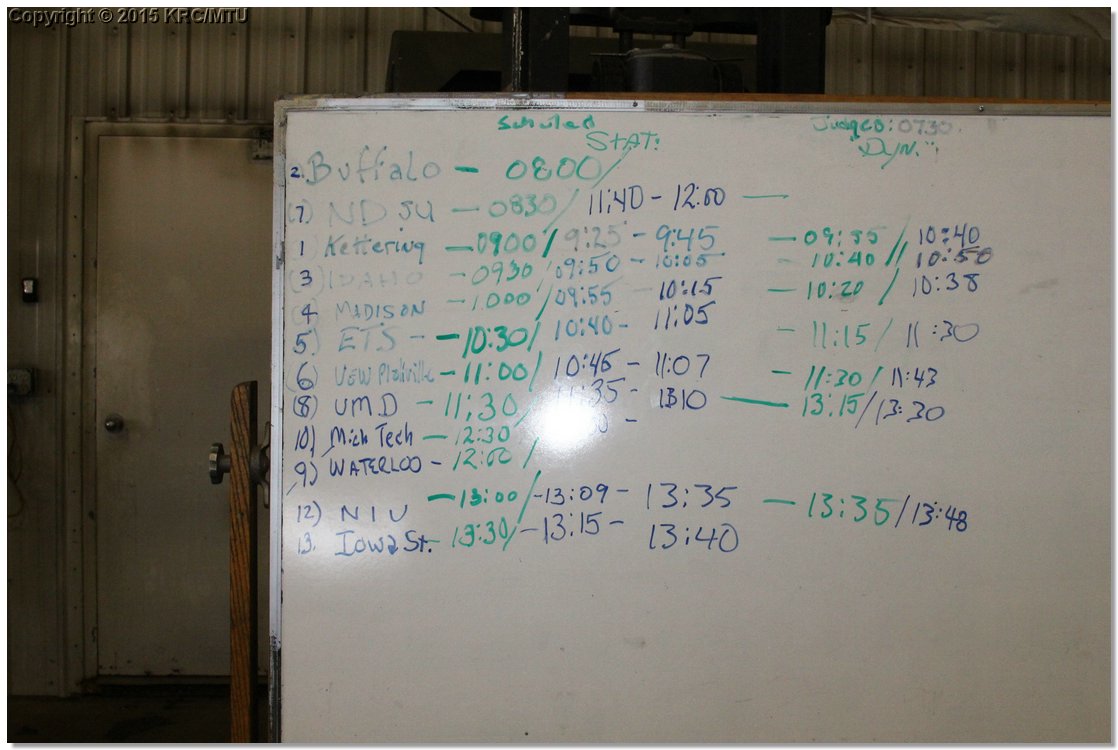 Copyright © 2015 KRC/MTU
Schuled STAT: Judges: 0730 DYN.
2. Buffalo - 0800 /
(7) NDSU - 0830 / 11:40 - 12:00 -
1) Kettering - 0900 / 9:25 - 9:45 - 09:55 / 10:40
(3) IDAHO - 0930 / 09:50 - 10:05 - 10:40 // 10:50
(4 MADISON - 1000 / 09:55 - 10:15 - 10:20 / 10:38
5) ETS - 10:30 / 10:40 - 11:05 - 11:15 / 11:30
(6) UW Platville - 11:00 / 10:45 - 11:07 - 11:30 / 11:43
(8) UMD - 11:30 / 11:35 - 1310 - 13:15 / 13:30
10) Mich Tech - 12:30 -
9) WATERLOO - 12:00 /
12) NIU - 13:00 / -13:09 - 13:35 - 13:35 / 13:48
13. Iowa St. - 13:30 / -13:15 - 13:40